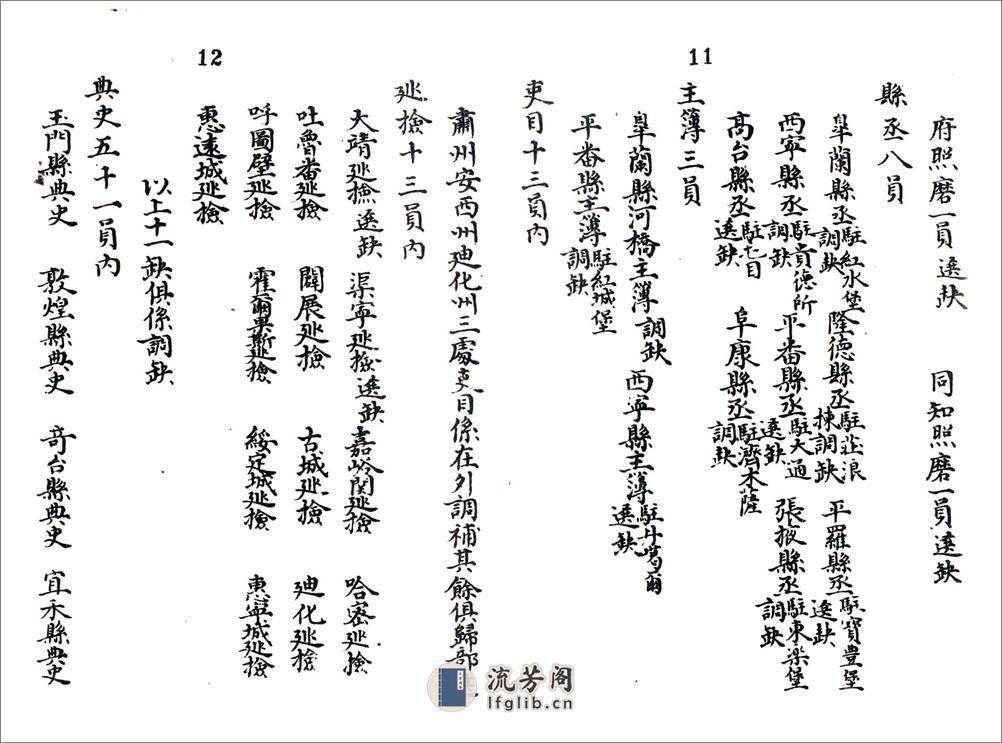 11
府照磨一員選缺　同知照磨一員選缺
縣丞八員
皐蘭縣丞駐紅水堡調缺　隆德縣丞駐莊浪揀調缺　平羅縣丞駐寶豊堡選缺
西寧縣丞駐貴德所調缺　平番縣丞駐大通選缺　張掖縣丞駐東樂堡調缺
高台縣丞駐毛目選缺　阜康縣丞駐濟木薩調缺
主簿三員
皐蘭縣河橋主簿調缺　西寧縣主簿駐丹噶爾選缺
平番縣主簿駐紅城堡調缺
吏目十三員內
12
肅州安西州廸化州三處吏目係在外調補其餘俱歸部
廵檢十三員內
大靖廵檢選缺　渠寧廵檢選缺　嘉峪関廵檢　哈密廵檢
吐魯番廵檢　闢展廵檢　古城廵檢　廸化廵檢
呼圖壁廵檢　霍爾果斯廵檢　綏定城廵檢　惠寧城廵檢
惠遠城廵檢
以上十一缺俱係調缺
典史五十一員內
玉門縣典史　敦煌縣典史　竒台縣典史　宜禾縣典史
流芳阁
lfglib.cn